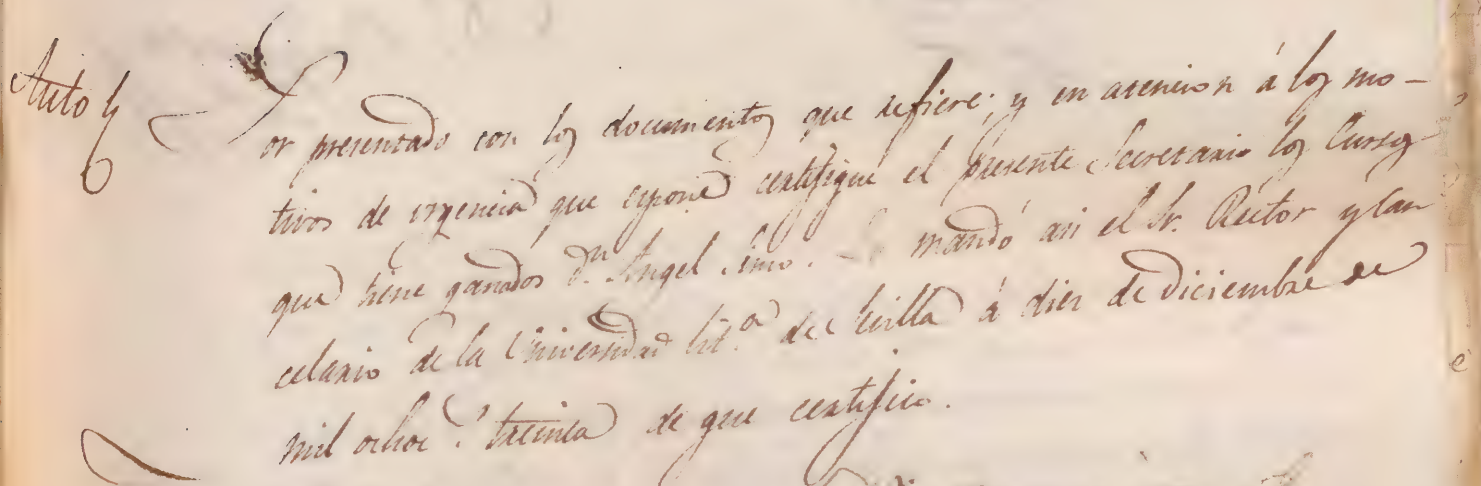 Auto
Por presentado con los documentos que refiere; y en atencion á los mo-
tivos de urgencia que espone certifique el presente Secretario los Cursos
que tiene ganados Dn. Angel Simo. Lo mandó asi el Sr. Rector y Can
celario de la Universidad Lit.a de Sevilla á diez de Diciembre de
mil ochoc.s treinta de que certifico.